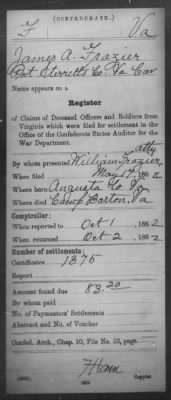 (CONFEDERATE.)
F Va
James A. Frazier
Pvt Sterretts Co. Va Cav
Name appears on a
Register
of Claims of Deceased Officers and Soldiers from
Virginia which were filed for settlement in the
Office of the Confederate States Auditor for the
War Department.
By whom presented William Frazier, atty
When filed May 17, 1862
Where born Augusta Co. Va
Where died Camp Barton, Va
Comptroller:
When reported to Oct 1, 1862
When returned Oct 2, 1862
Number of settlements:
Certificates 1375
Report
Amount found due 83.20
By whom paid
No. of Paymasters' Settlements
Abstract and No. of Voucher
Confed. Arch., Chap. 10, File No. 22, page
Copyist.